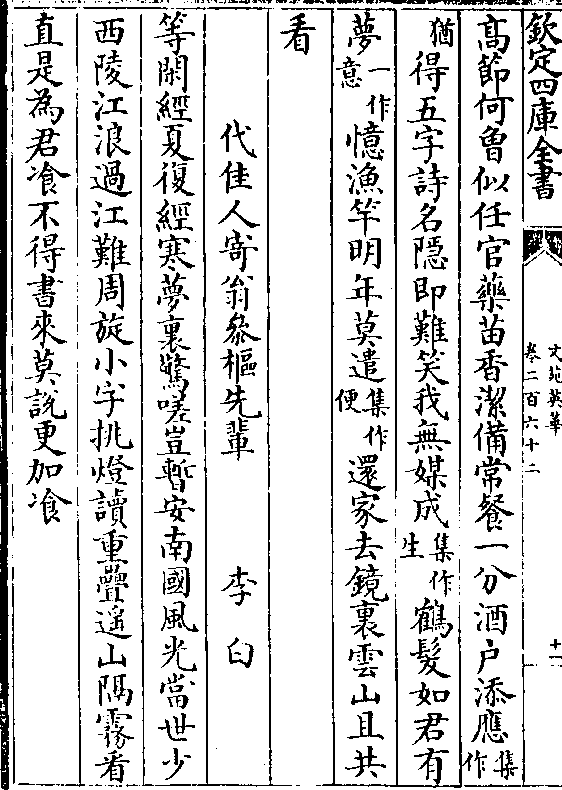 欽定四庫全書
文苑英華
卷二百六十二
十一
髙節何曾似任官藥苗香潔備常餐一分酒户添應集作
猶得五字詩名隠即難笑我無媒成集作生鶴髪如君有
夢一作意憶漁竿明年莫遣集作便還家去鏡裏雲山且共
看
代佳人寄翁叅樞先輩 李白
等閑經夏復經寒夢裏驚嗟豈暫安南國風光當世少
西陵江浪過江難周旋小字挑燈讀重疊遥山隔霧看
直是為君飡不得書來莫說更加飡